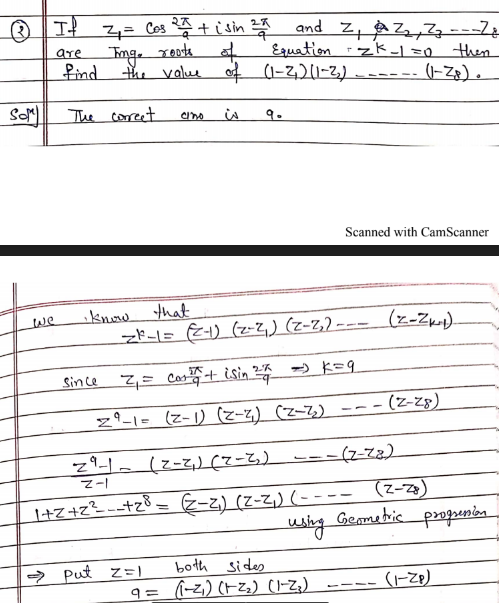 ② If z₁ = cos 2π/9 + i sin 2π/9 and z₁, z₂, z₃ ---z₈
are Img. roots of Equation z^k-1=0 then
find the value of (1-z₁)(1-z₂) ------ (1-z₈).
Sol^n] The correct ans is 9.
Scanned with CamScanner
we know that
z^k-1= (z-1) (z-z₁) (z-z₂) --- (z-z_{k-1})
since z₁ = cos 2π/9 + i sin 2π/9 ⇒ k=9
z⁹-1= (z-1) (z-z₁) (z-z₂) --- (z-z₈)
z⁹-1/z-1 = (z-z₁) (z-z₂) ---(z-z₈)
1+z+z² ---+z⁸ = (z-z₁) (z-z₁) (---- (z-z₈)
using Geometric progression
⇒ put z=1 both sides
9= (1-z₁) (1-z₂) (1-z₃) ---- (1-z₈)